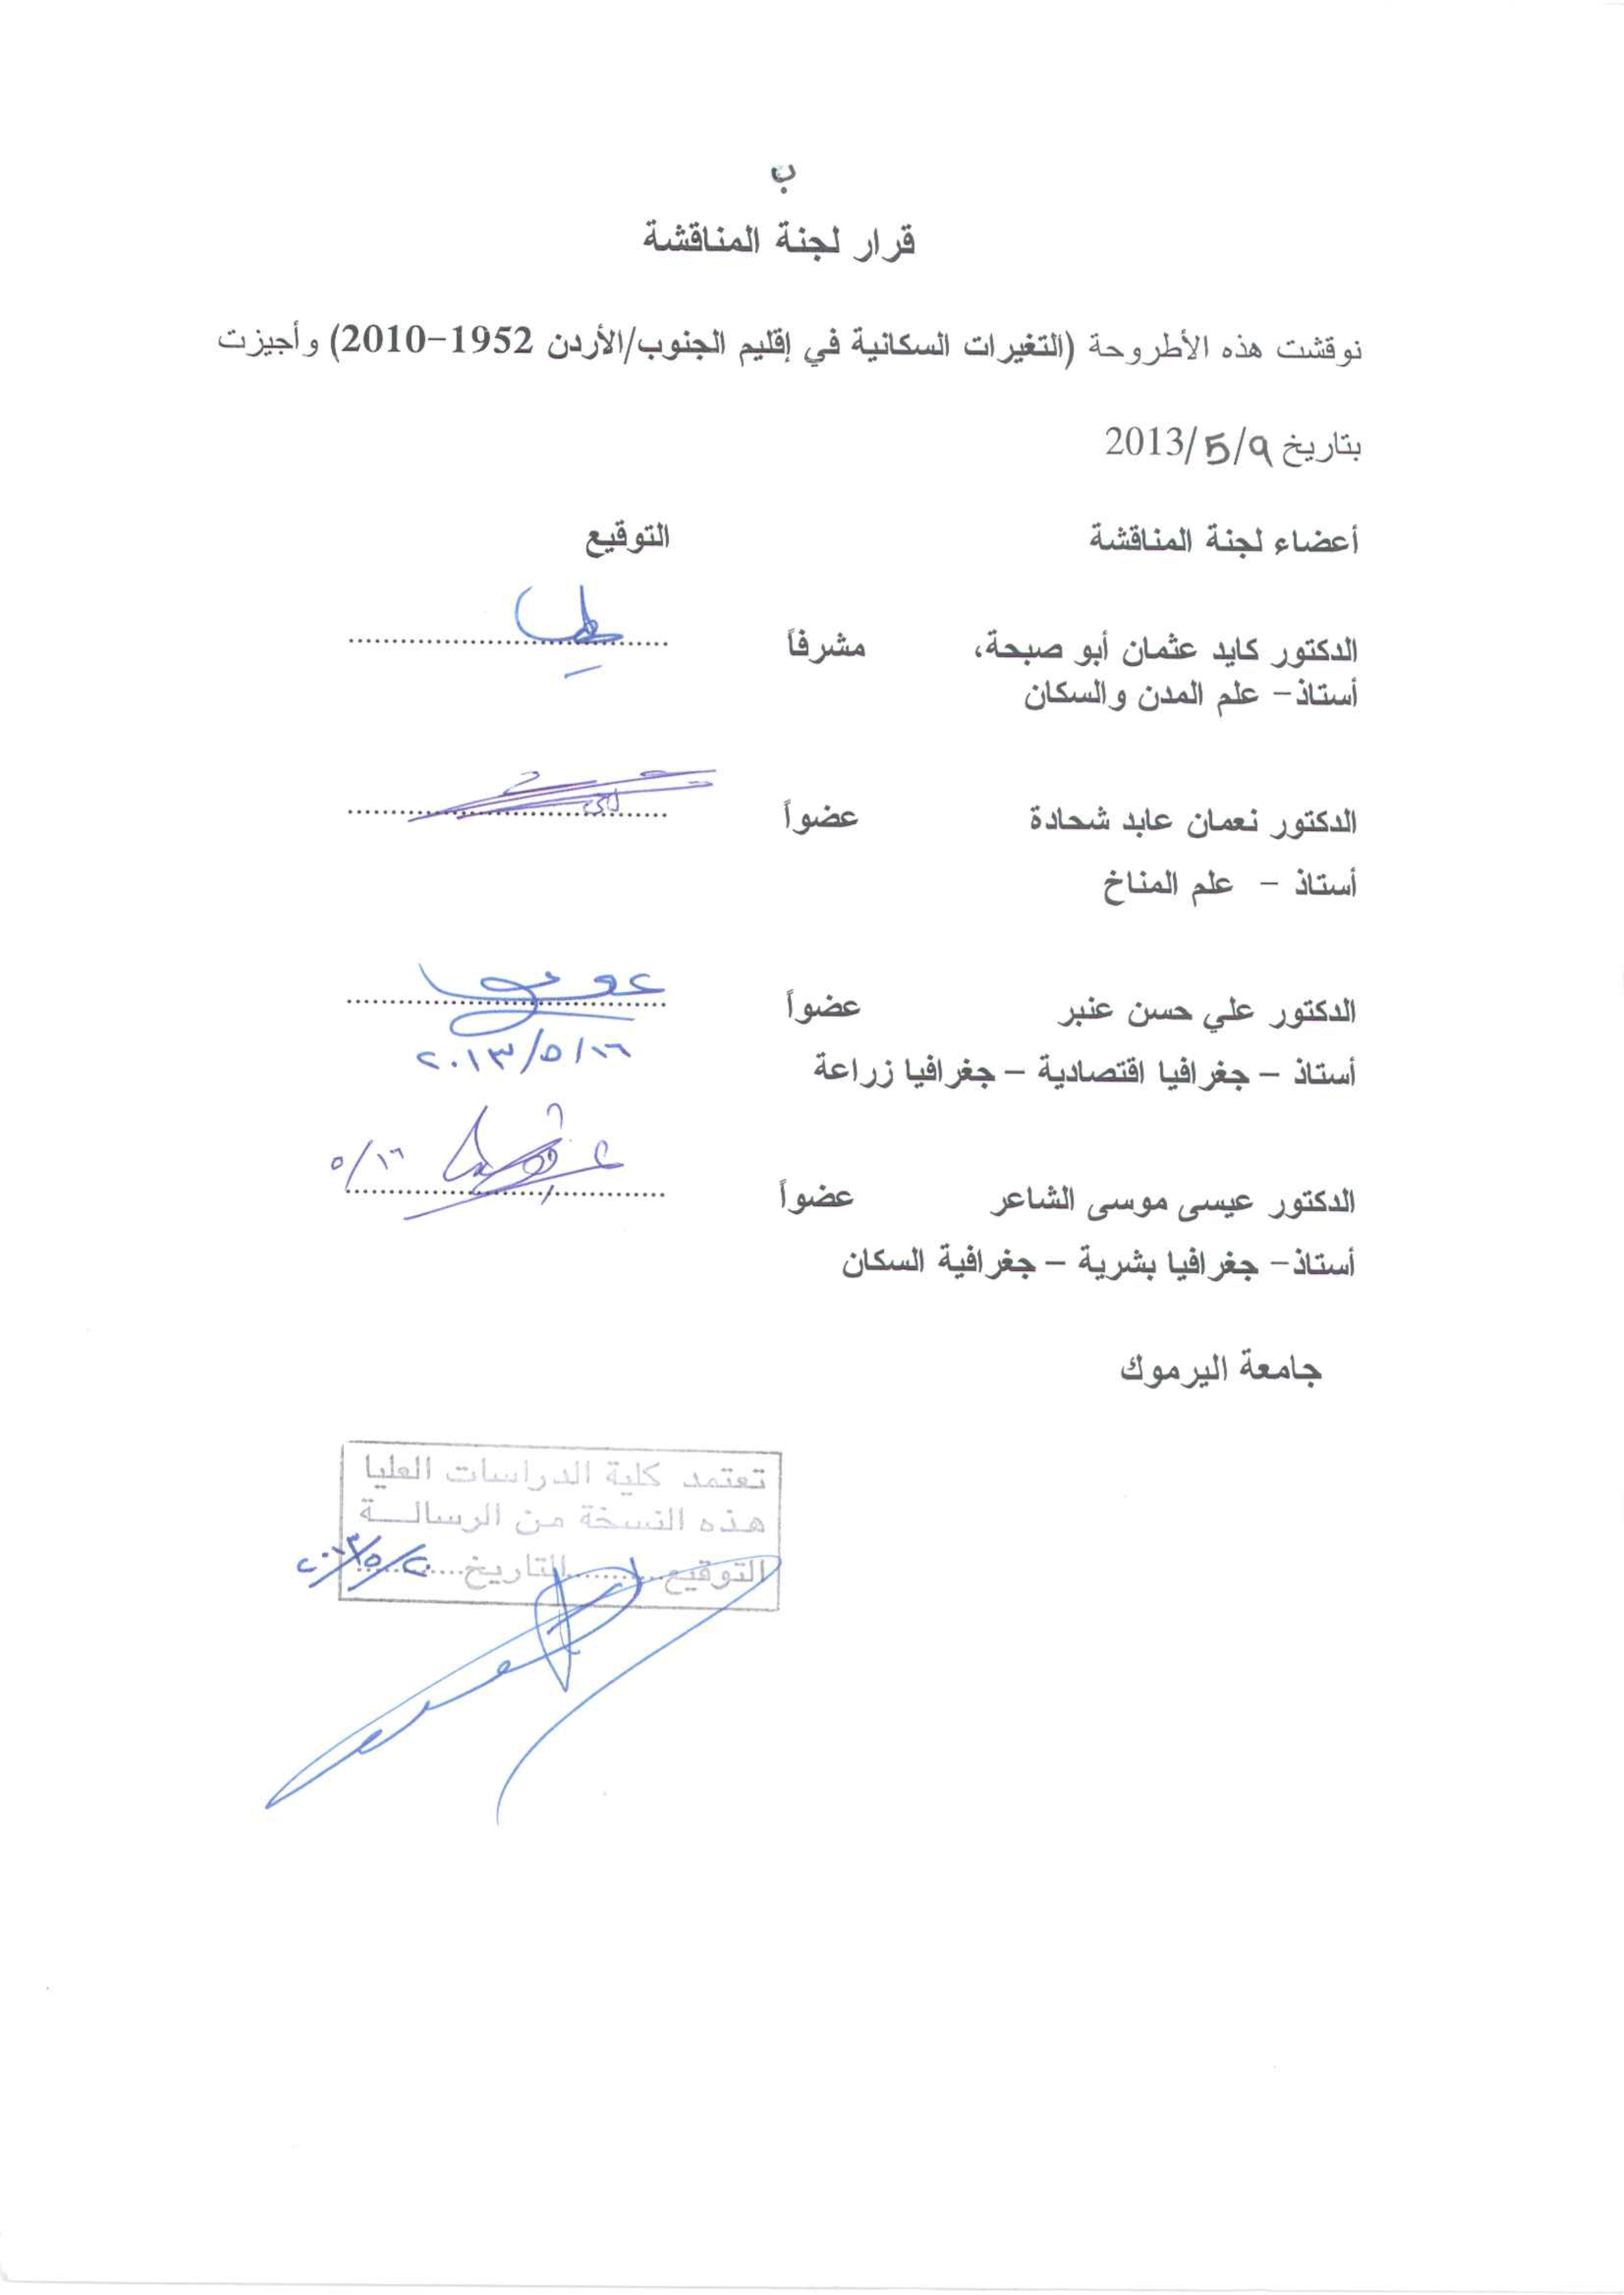 ب
قرار لجنة المناقشة
نوقشت هذه الأطروحة (التغيرات السكانية في إقليم الجنوب/الأردن 1952-2010) وأجيزت
بتاريخ 9/5/2013
أعضاء لجنة المناقشة التوقيع
الدكتور كايد عثمان أبو صبحة، مشرفاً ........................................
أستاذ- علم المدن والسكان
الدكتور نعمان عابد شحادة عضواً ........................................
أستاذ - علم المناخ
الدكتور علي حسن عنبر عضواً ........................................
٢٠١٣/٥/١٦
أستاذ – جغرافيا اقتصادية – جغرافيا زراعة
٥/١٦
الدكتور عيسى موسى الشاعر عضواً ........................................
أستاذ- جغرافيا بشرية – جغرافية السكان
جامعة اليرموك
تعتمد كلية الدراسات العليا
هذه النسخة من الرسالـــة
التوقيع............التاريخ............